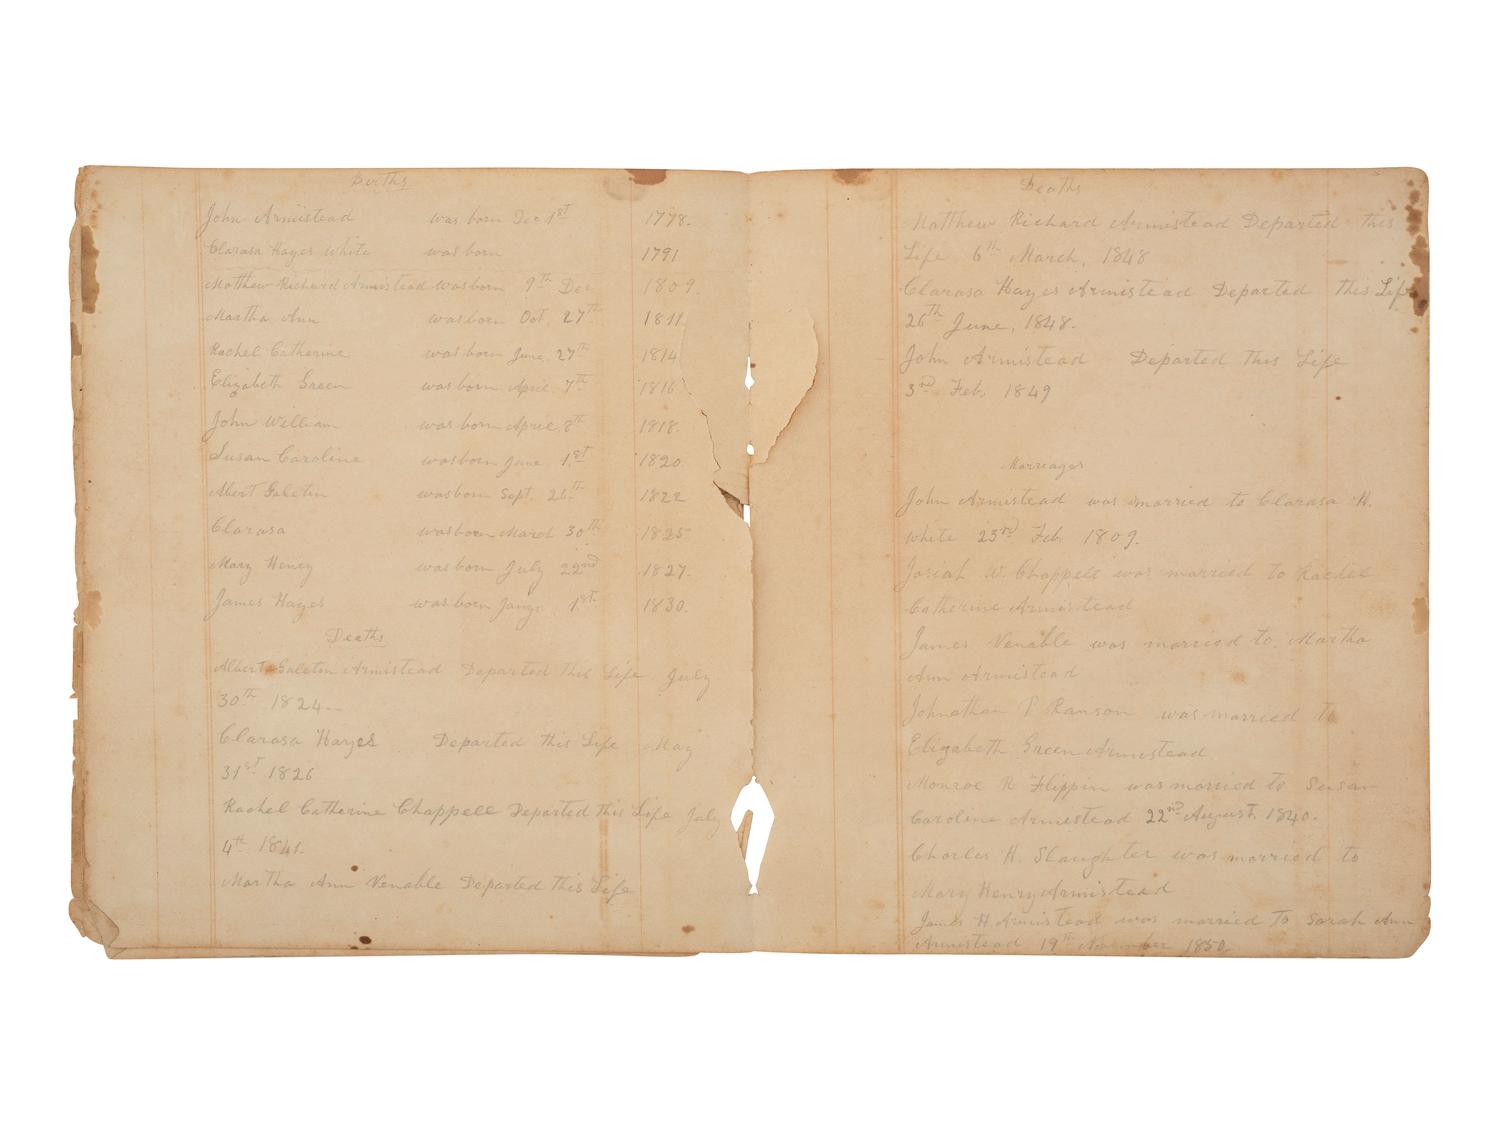 Births
John Armistead was born Dec 1st 1778.
Clarasa Hayes White was born 1791
Matthew Richard Armistead was born 9th Dec 1809.
Martha Ann was born Oct. 27th 1811
Rachel Catherine was born June, 27th 1814
Elizabeth Green was born April 7th 1816
John William was born April 8th 1818.
Susan Caroline was born June 1st 1820
Albert Galetin was born Sept. 26th 1822
Clarasa was born March 30th 1825
Mary Henry was born July 22nd 1827.
James Hayes was born 1st 1830.
Deaths
Albert Galetin Armistead Departed this Life July
30th 1824
Clarasa Hayes Departed this Life May
31st 1826
Rachel Catherine Chappell Departed this Life July
4th 1841.
Martha Ann Venable Departed this Life
Deaths
Matthew Richard Armistead Departed this
Life 6th March, 1848
Clarasa Hayes Armistead Departed this Life
26th June, 1848.
John Armistead Departed this Life
3rd Feb, 1849
Marriages
John Armistead was married to Clarasa H.
White 23rd Feb. 1809.
Josiah W. Chappell was married to Rachel
Catherine Armistead
James Venable was married to Martha
Ann Armistead
Johnathan P Ranson was married to
Elizabeth Green Armistead
Monroe R Flippin was married to Susan
Caroline Armestead 22nd August, 1840.
Charles H. Slaughter was married to
Mary Henry Armistead
James H Armistead was married to Sarah Ann
Armistead 19th November 1850.